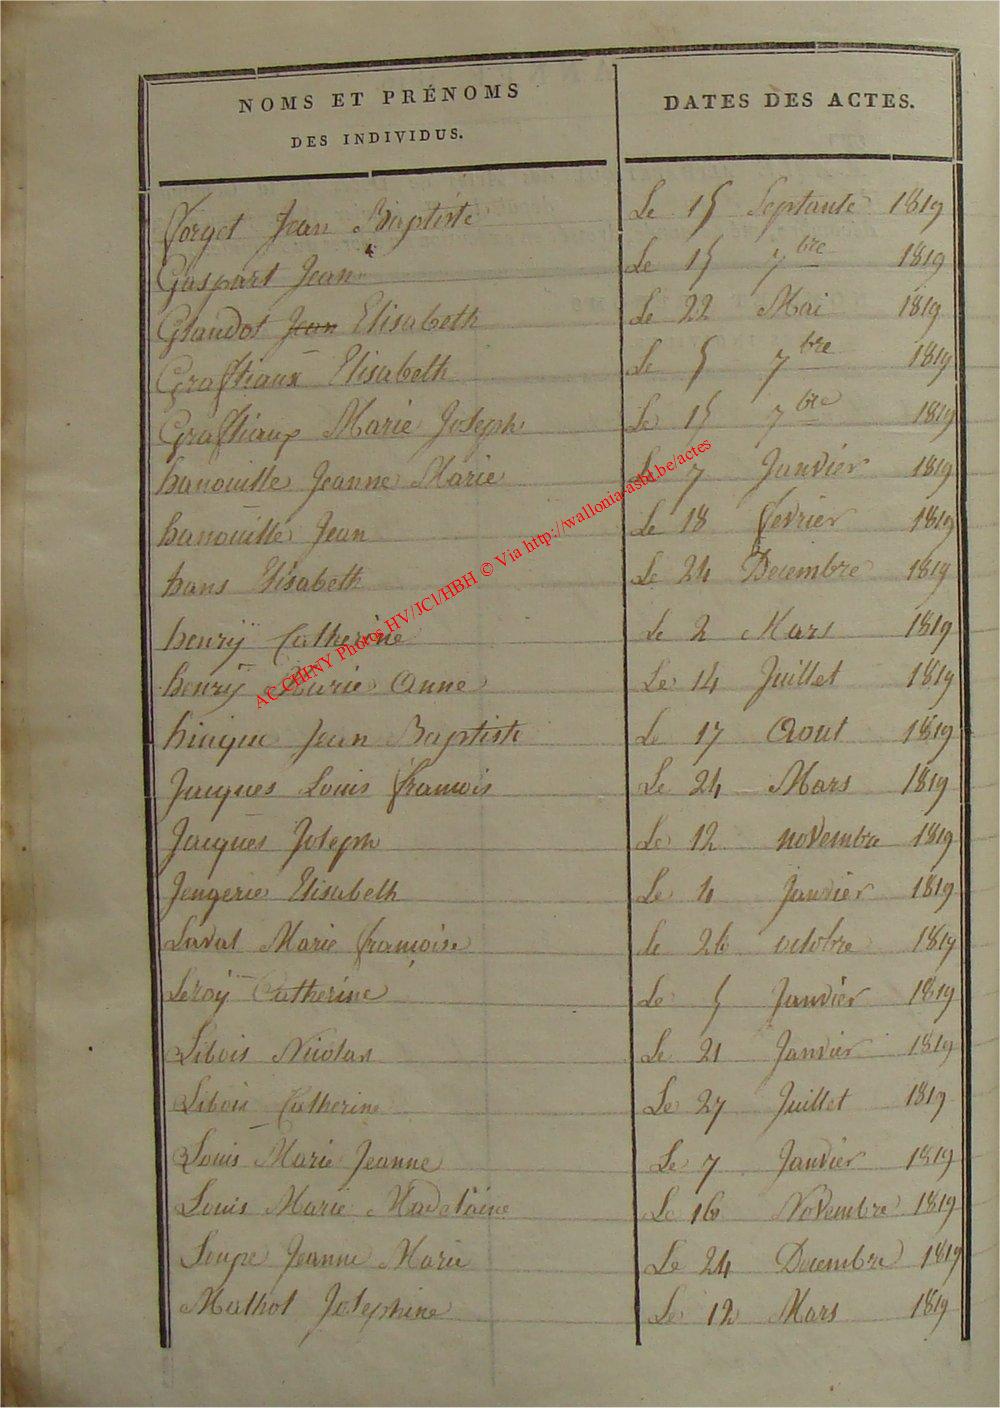 NOMS ET PRÉNOMS
DES INDIVIDUS.
DATES DES ACTES.
forget Jean Baptiste Le 15 Septante 1819
Gaspart Jean Le 15 7bre 1819
Glaudot Jean Elisabeth Le 22 Mai 1819
Graftiaux Elisabeth Le 5 7bre 1819
Graftiaux Marie Joseph Le 15 7bre 1819
hanouille Jeanne Marie Le 7 Janvier 1819
hanouille Jean Le 18 fevrier 1819
hans Elisabeth Le 24 Decembre 1819
henrÿ Catherine Le 2 Mars 1819
henrÿ Marie Anne Le 14 Juillet 1819
hinque Jean Baptiste Le 17 Aout 1819
Jacques Louis francois Le 24 Mars 1819
Jacques Joseph Le 12 novembre 1819
Jengerie Elisabeth Le 4 Janvier 1819
Laval Marie françoise Le 26 octobre 1819
Leroÿ Catherine Le 5 Janvier 1819
Libois Nicolas Le 21 Janvier 1819
Libois Catherine Le 27 Juillet 1819
Louis Marie Jeanne Le 7 Janvier 1819
Louis Marie Madelaine Le 16 Novembre 1819
Loupe Jeanne Marie Le 24 Decembre 1819
Mathot Josephine Le 12 Mars 1819
AC CHINY Photos HV/JCl/HBH © Via http://wallonia-asbl.be/actes